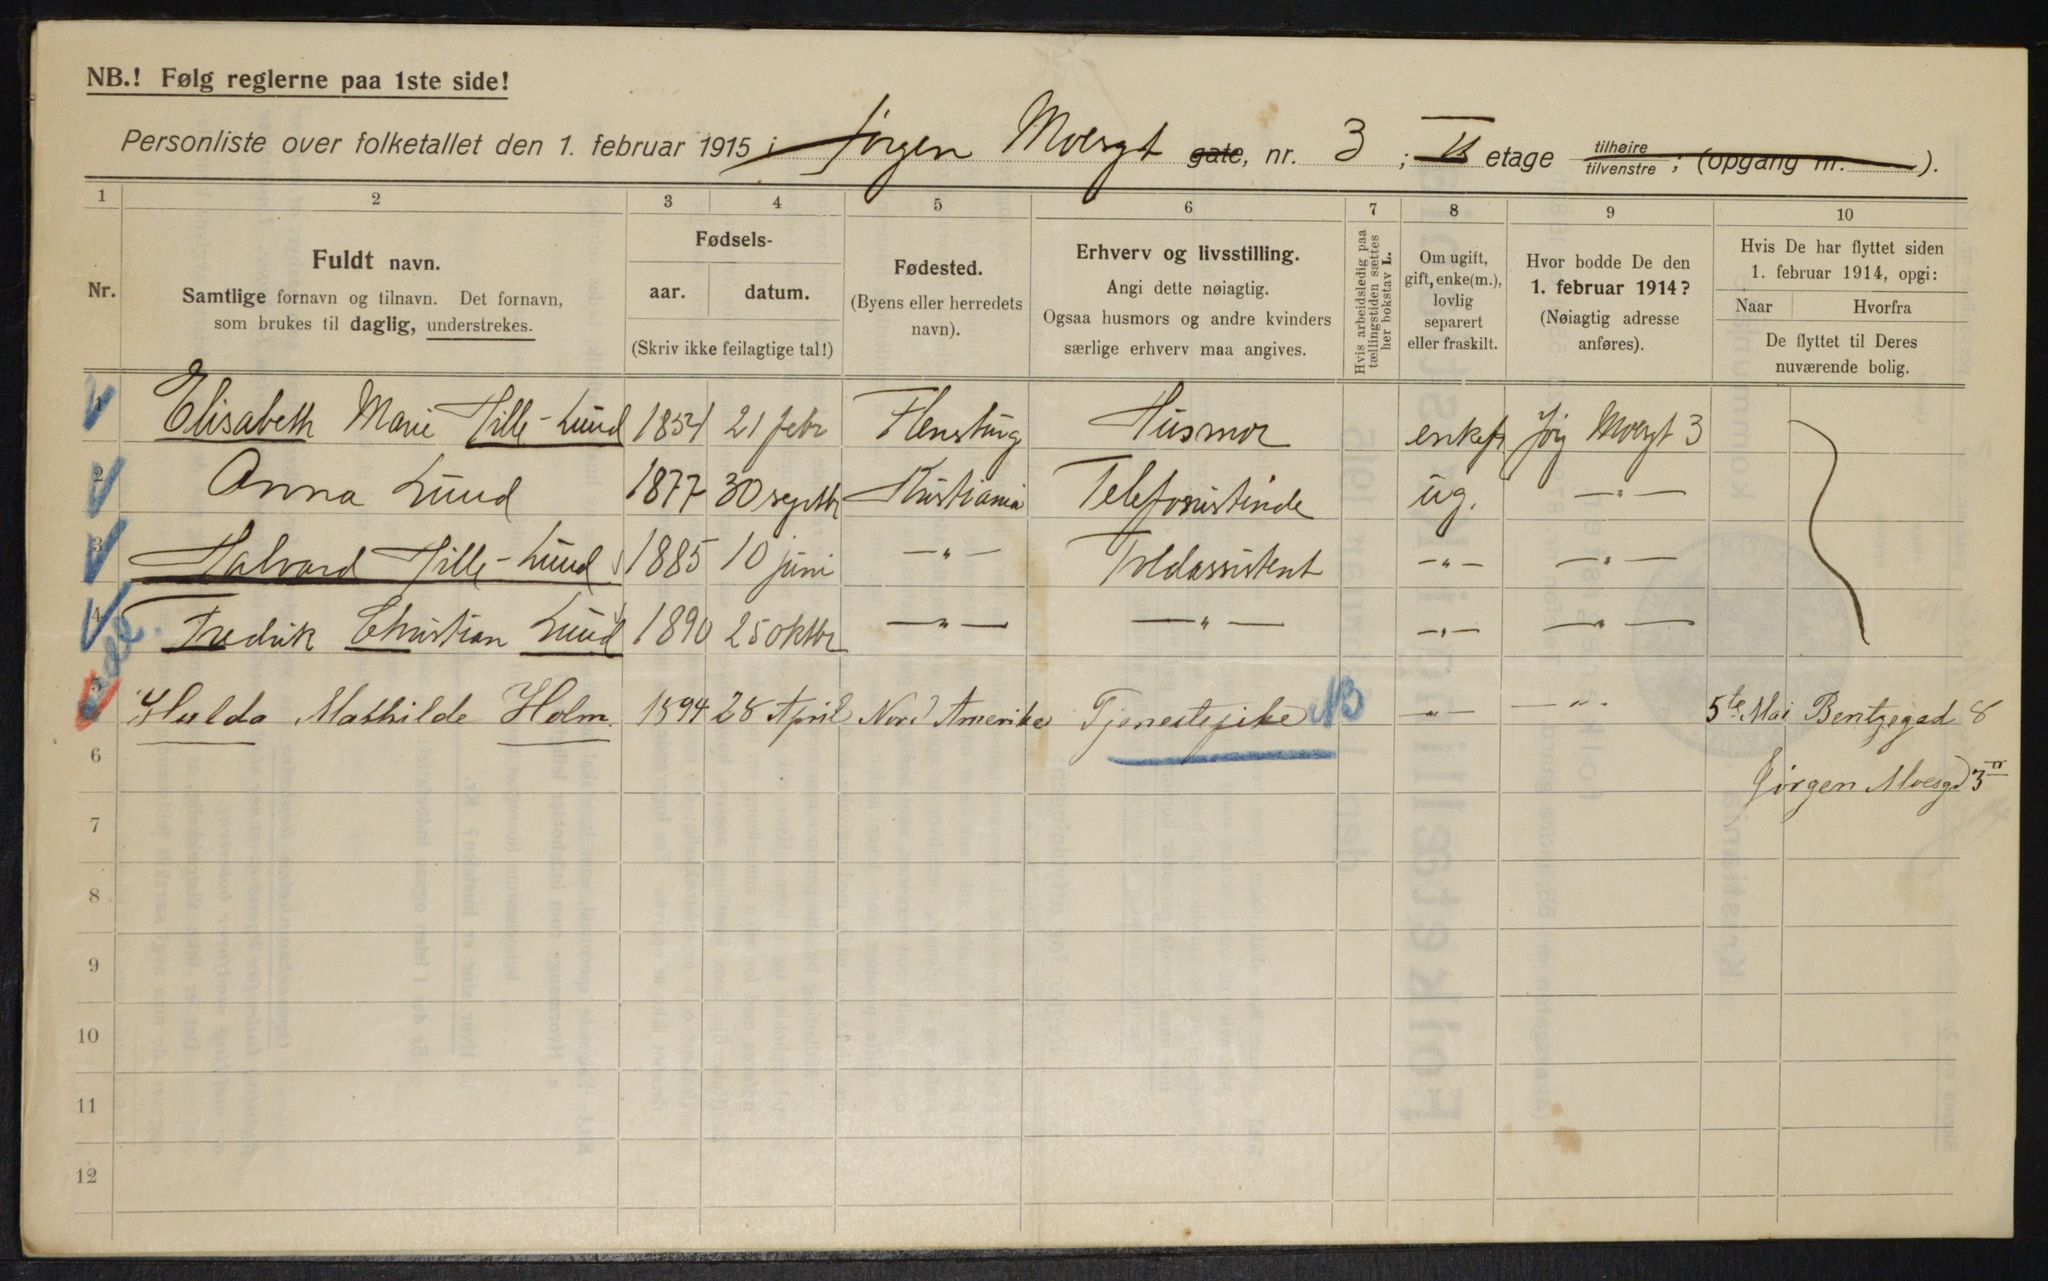 NB.! Følg reglerne paa 1ste side!
Personliste over folketallet den 1. februar 1915 i Jørgen Moesgt gate, nr. 3 ; II etage tilhøire tilvenstre ; (opgang nr. ).
1 2 3 4 5 6 7 8 9 10
Nr.
Fuldt navn.
Samtlige fornavn og tilnavn. Det fornavn,
som brukes til daglig, understrekes.
Fødsels-
aar. datum.
(Skriv ikke feilagtige tal!)
Fødested.
(Byens eller herredets
navn).
Erhverv og livsstilling.
Angi dette nøiagtig.
Ogsaa husmors og andre kvinders
særlige erhverv maa angives.
Hvis arbeidsledig paa
tællingstiden sættes
her bokstav L.
Om ugift,
gift, enke(m.),
lovlig
separert
eller fraskilt.
Hvor bodde De den
1. februar 1914?
(Nøiagtig adresse
anføres).
Hvis De har flyttet siden
1. februar 1914, opgi:
Naar Hvorfra
De flyttet til Deres
nuværende bolig.
1 Elisabeth Marie Hille-Lund 1854 21 febr Flensburg Husmor enkefr Jørg Moesgt 3
2 Anna Lund 1877 30 septbr Kristiania Telefonistinde ug. —"—
3 Halvard Hille-Lund 1885 10 juni —"— Toldassistent —"— —"—
4 Fredrik Christian Lund 1890 25 oktbr —"— —"— —"— —"—
5 Hulda Mathilde Holm. 1894 28 April Nord Amerika Tjenestepike —"— —"— 5te Mai Bentzegad 8
6 Jørgen Moesgd 3 II
7
8
9
10
11
12